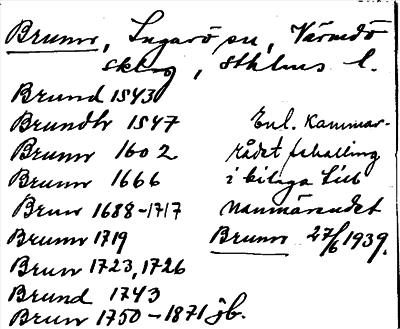 Brunn, Ingarö sn, Värmdö
sklag, Sthlms l.
Brund 1543
Brundh 1547 Enl. Kammar-
Brunn 1602 rådet
Brunn 1666 i bilaga till
Brun 1688-1717 namnärendet
Brunn 1719 Brunn 27/6 1939.
Brun 1723, 1726
Brund 1743
Brun 1750-1871 jb.